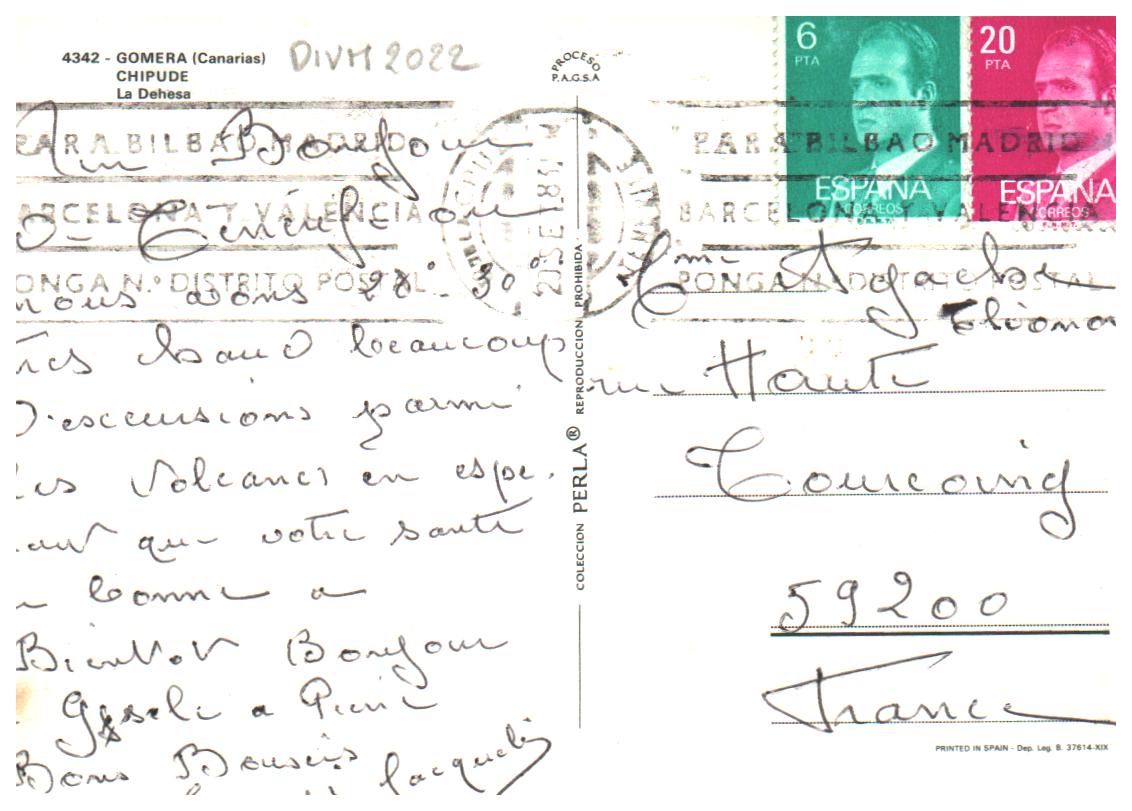 4342 - GOMERA (Canarias)
CHIPUDE
La Dehesa
DIVM 2022
PROCESO
P.A.G.S.A
6
PTA
ESPAÑA
CORREOS
20
PTA
ESPAÑA
CORREOS
PARA BILBAO MADRID
BARCELONA Y VALENCIA
PONGA N.º DISTRITO POSTAL
PARA BILBAO MADRID
BARCELONA Y VALENCIA
PONGA N.º DISTRITO POSTAL
Un Bonjour
De Ténérife ou
nous avons 28° 30°
très chaud beaucoup
D'excursions parmi
les Volcans en espé-
rant que votre santé
bonne a
Bientot Bonjour
Gisele a Pierre
Bons Baisers
Jacqueli
COLECCION PERLA® REPRODUCCION PROHIBIDA
Eléonor
rue Haute
Tourcoing
59200
France
PRINTED IN SPAIN - Dep. Leg. B. 37614-XIX